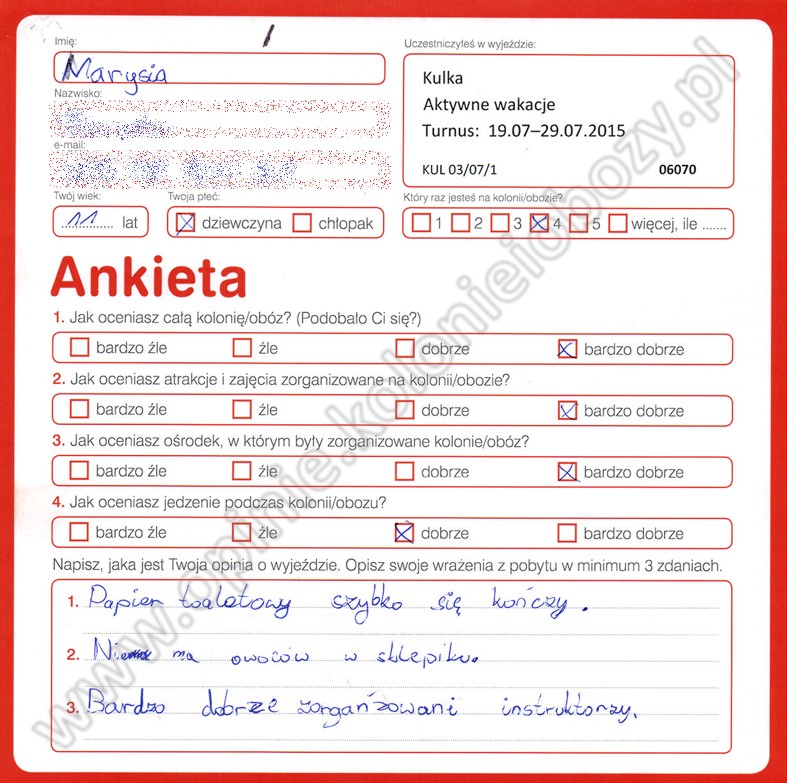 Imię:
Marysia
Nazwisko:
e-mail:
Twój wiek:
11 lat
Twoja płeć:
dziewczyna chłopak
Uczestniczyłeś w wyjeździe:
Kulka
Aktywne wakacje
Turnus: 19.07–29.07.2015
KUL 03/07/1 06070
Który raz jesteś na kolonii/obozie?
1 2 3 4 5 więcej, ile .......
Ankieta
1. Jak oceniasz całą kolonię/obóz? (Podobało Ci się?)
bardzo źle źle dobrze bardzo dobrze
2. Jak oceniasz atrakcje i zajęcia zorganizowane na kolonii/obozie?
bardzo źle źle dobrze bardzo dobrze
3. Jak oceniasz ośrodek, w którym były zorganizowane kolonie/obóz?
bardzo źle źle dobrze bardzo dobrze
4. Jak oceniasz jedzenie podczas kolonii/obozu?
bardzo źle źle dobrze bardzo dobrze
Napisz, jaka jest Twoja opinia o wyjeździe. Opisz swoje wrażenia z pobytu w minimum 3 zdaniach.
1. Papier toaletowy szybko się kończy.
2. Nie ma owoców w sklepiku.
3. Bardzo dobrze zorganizowani instruktorzy.
www.opinie.kolonieiobozy.pl